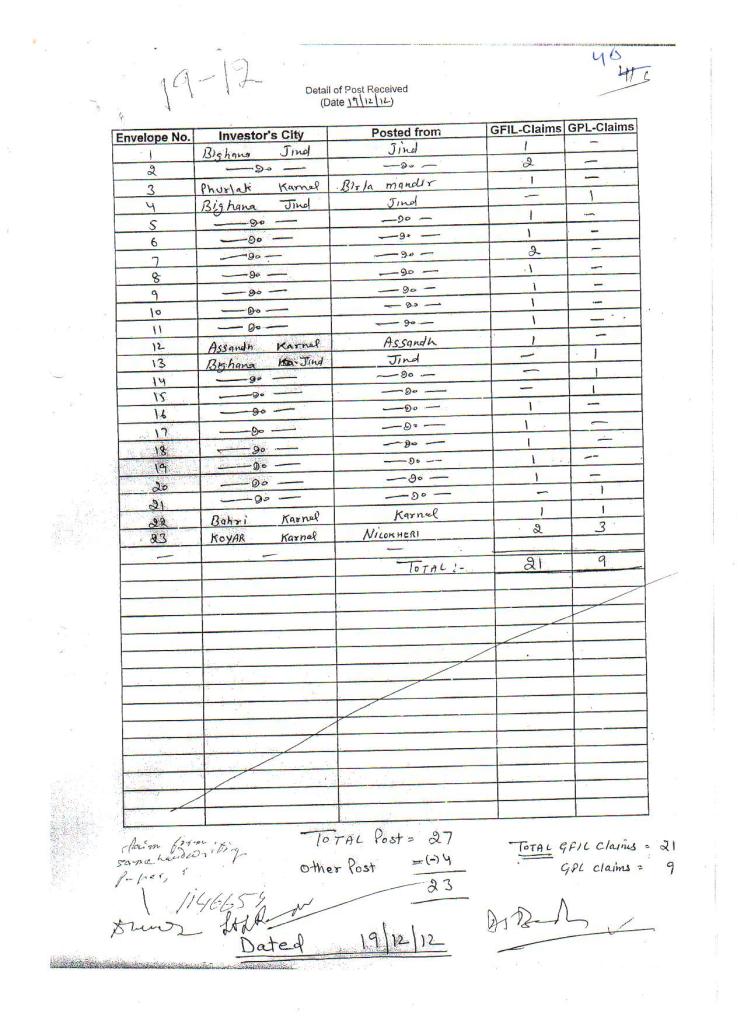 19-12
40
Detail of Post Received
(Date 19/12/12)
Envelope No. Investor's City Posted from GFIL-Claims GPL-Claims
1 Bighana Jind Jind 1 —
2 — Do — — Do — 2 —
3 Phurlak Karnal Birla mandir 1 —
4 Bighana Jind Jind — 1
5 — Do — — Do — 1 —
6 — Do — — Do — 1 —
7 — Do — — Do — 2 —
8 — Do — — Do — 1 —
9 — Do — — Do — 1 —
10 — Do — — Do — 1 —
11 — Do — — Do — 1 —
12 Assandh Karnal Assandh 1 —
13 Bighana Jind Jind — 1
14 — Do — — Do — — 1
15 — Do — — Do — — 1
16 — Do — — Do — 1 —
17 — Do — — Do — 1 —
18 — Do — — Do — 1 —
19 — Do — — Do — 1 —
20 — Do — — Do — 1 —
21 — Do — — Do — — 1
22 Bahri Karnal Karnal 1 1
23 KOYAR Karnal NILOKHERI 2 3
— — —
TOTAL :- 21 9
TOTAL Post = 27
Other Post =(-) 4
23
TOTAL GFIL Claims = 21
GPL claims = 9
claim form
same handwriting
Dated 19/12/12